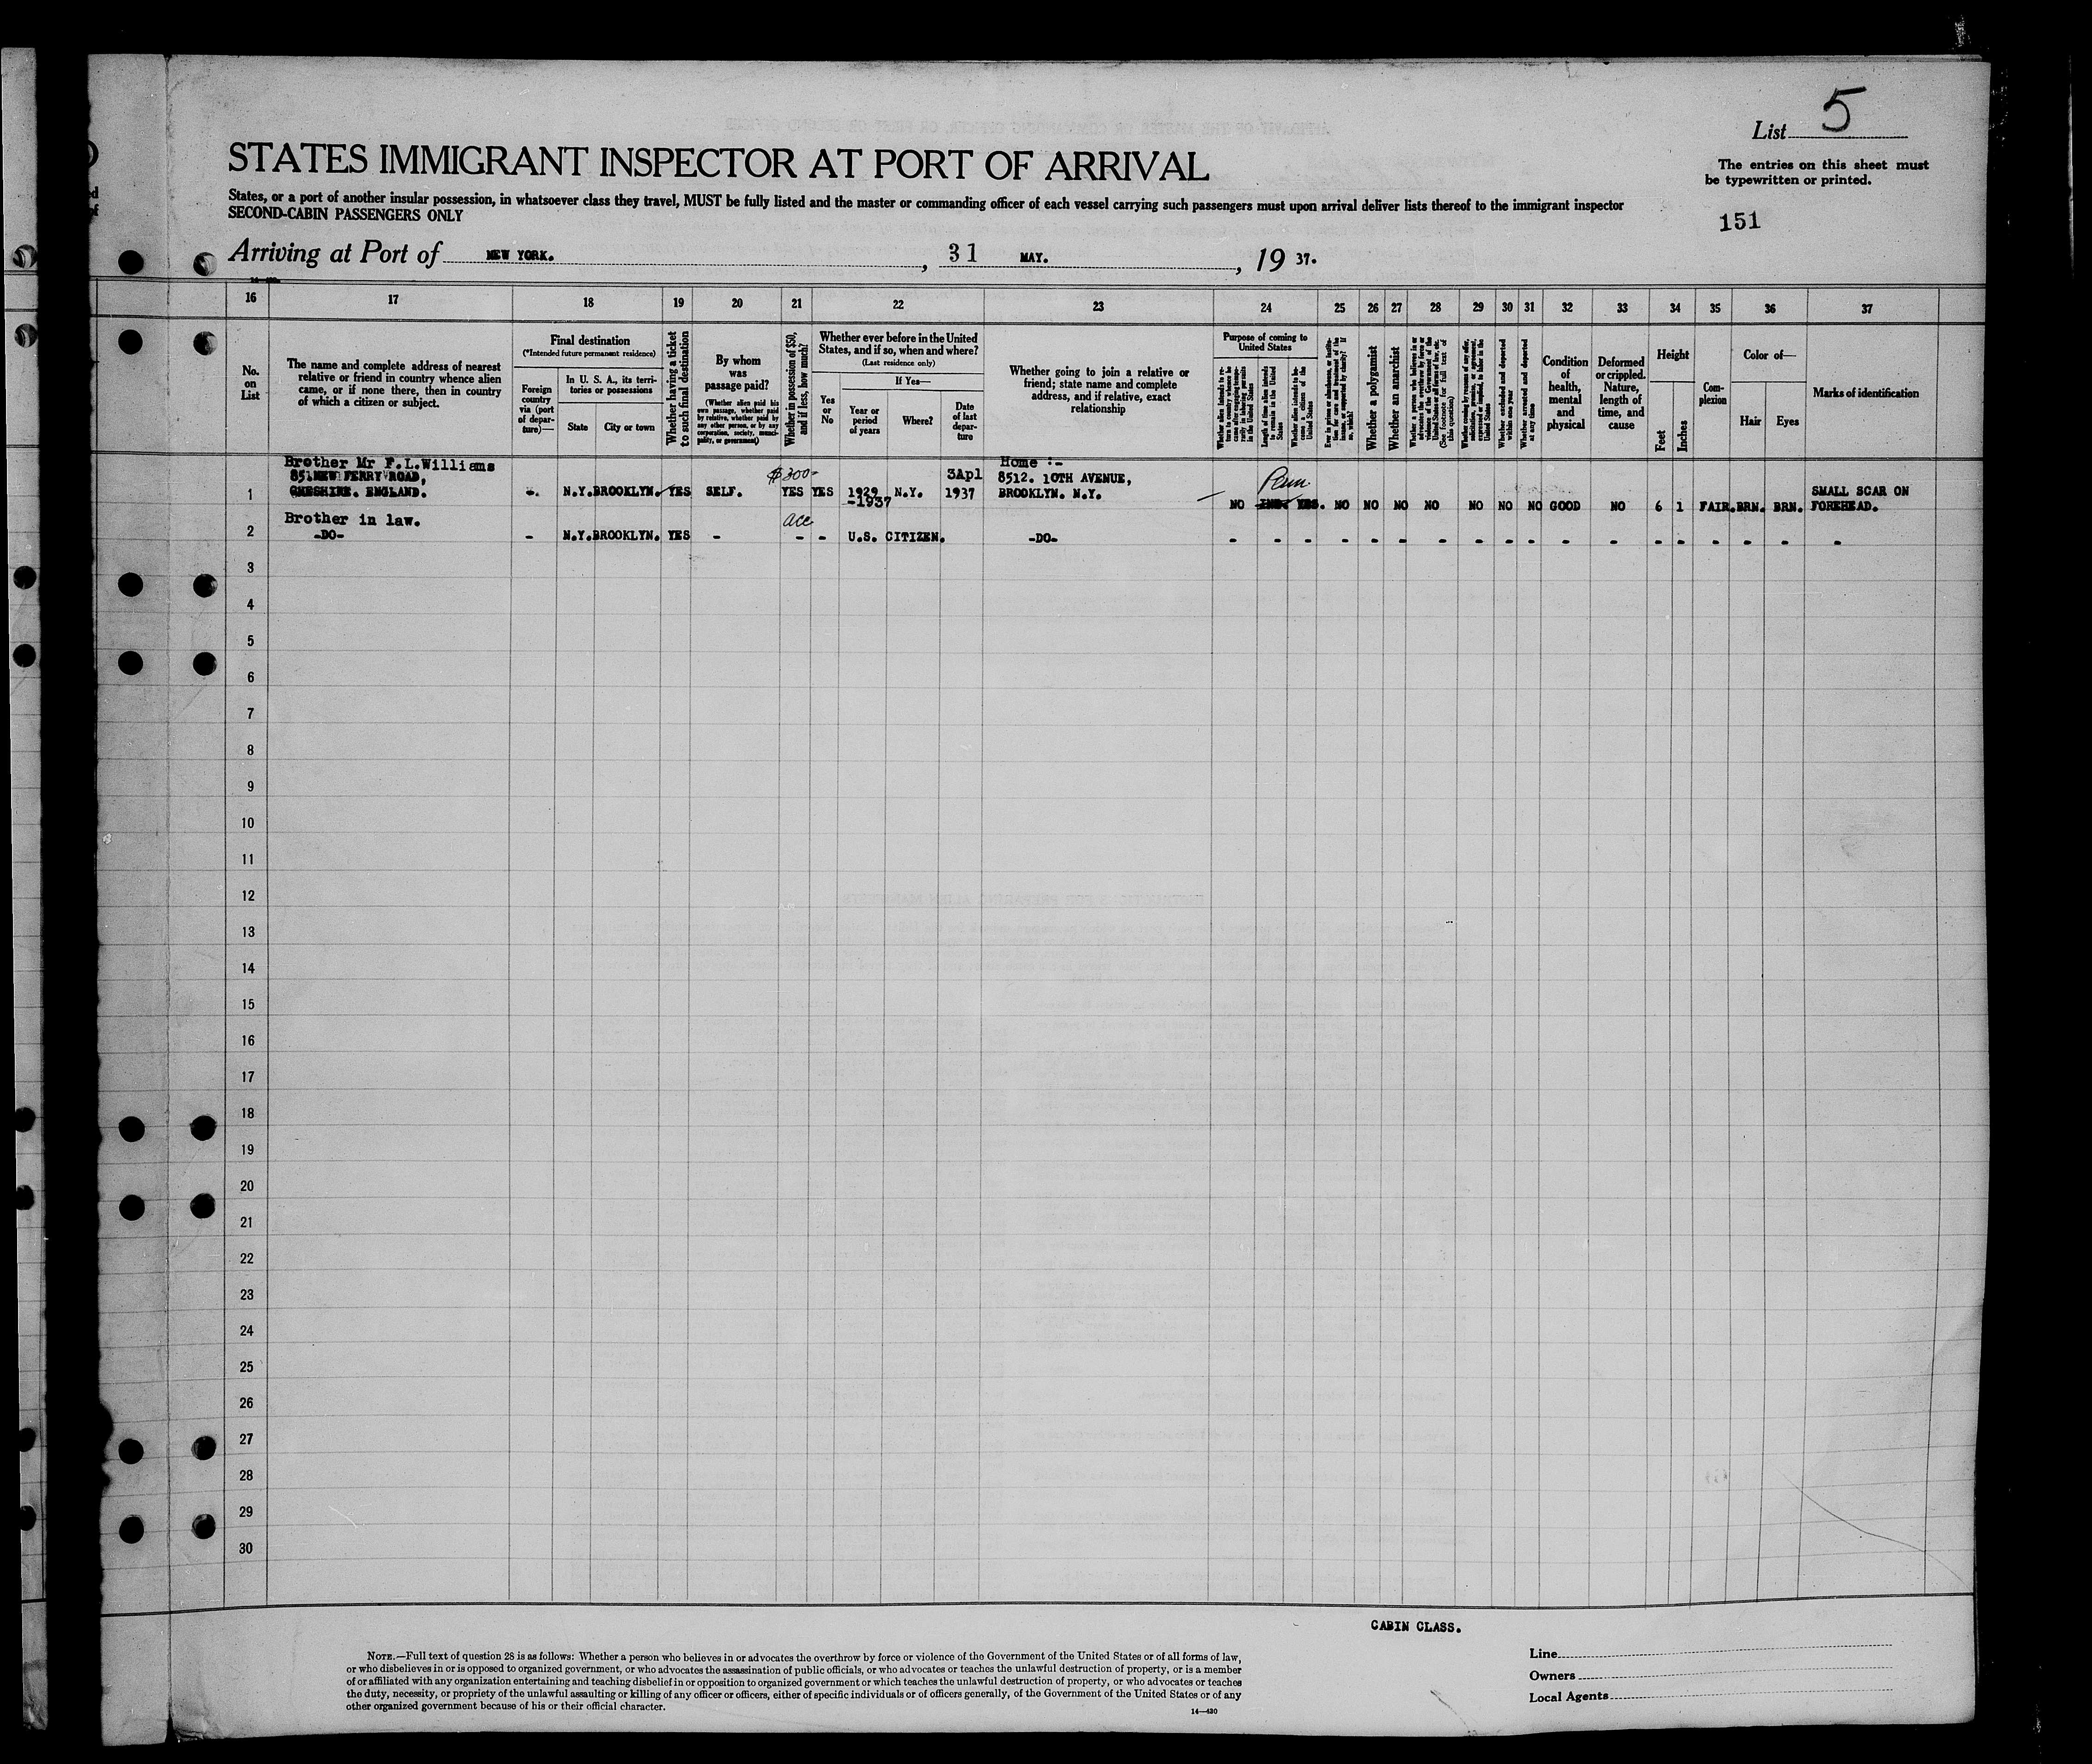 List 5
STATES IMMIGRANT INSPECTOR AT PORT OF ARRIVAL
The entries on this sheet must
be typewritten or printed.
States, or a port of another insular possession, in whatsoever class they travel, MUST be fully listed and the master or commanding officer of each vessel carrying such passengers must upon arrival deliver lists thereof to the immigrant inspector
SECOND-CABIN PASSENGERS ONLY
151
Arriving at Port of NEW YORK. , 31 MAY. , 19 37.
16 17 18 19 20 21 22 23 24 25 26 27 28 29 30 31 32 33 34 35 36 37
No.
on
List
The name and complete address of nearest
relative or friend in country whence alien
came, or if none there, then in country
of which a citizen or subject.
Final destination
(*Intended future permanent residence)
Foreign
country
via (port
of depar-
ture)—
In U. S. A., its terri-
tories or possessions
State
City or town
Whether having a ticket
to such final destination
By whom
was
passage paid?
(Whether alien paid his
own passage, whether paid
by relative, whether paid by
any other person, or by any
corporation, society, munici-
pality, or government)
Whether in possession of $50,
and if less, how much?
Whether ever before in the United
States, and if so, when and where?
(Last residence only)
Yes
or
No
If Yes—
Year or
period
of years
Where?
Date
of last
depar-
ture
Whether going to join a relative or
friend; state name and complete
address, and if relative, exact
relationship
Purpose of coming to
United States
Length of time alien intends
to remain in the United
States
Whether a polygamist
Whether an anarchist
Whether arrested and deported
at any time
Condition
of
health,
mental
and
physical
Deformed
or crippled.
Nature,
length of
time, and
cause
Height
Feet
Inches
Com-
plexion
Color of—
Hair
Eyes
Marks of identification
Brother Mr F.L.Williams
85, NEW FERRY ROAD,
$300-
3Apl
Home :-
8512. 10TH AVENUE,
Perm.
1 CHESHIRE. ENGLAND. -. N.Y. BROOKLYN. YES SELF. YES YES 1929 N.Y. 1937 BROOKLYN. N.Y.
-1937
NO IND. YES. NO NO NO NO NO NO NO GOOD NO 6 1 FAIR. BRN. BRN. SMALL SCAR ON
FOREHEAD.
Brother in law.
acc
2 -DO- - N.Y. BROOKLYN. YES - - - U.S. CITIZEN. -DO- - - - - - - - - - - - - - - - - - -
3
4
5
6
7
8
9
10
11
12
13
14
15
16
17
18
19
20
21
22
23
24
25
26
27
28
29
30
CABIN CLASS.
NOTE.—Full text of question 28 is as follows: Whether a person who believes in or advocates the overthrow by force or violence of the Government of the United States or of all forms of law,
or who disbelieves in or is opposed to organized government, or who advocates the assassination of public officials, or who advocates or teaches the unlawful destruction of property, or is a member
of or affiliated with any organization entertaining and teaching disbelief in or opposition to organized government or which teaches the unlawful destruction of property, or who advocates or teaches
the duty, necessity, or propriety of the unlawful assaulting or killing of any officer or officers, either of specific individuals or of officers generally, of the Government of the United States or of any
other organized government because of his or their official character.
14—430
Line
Owners
Local Agents